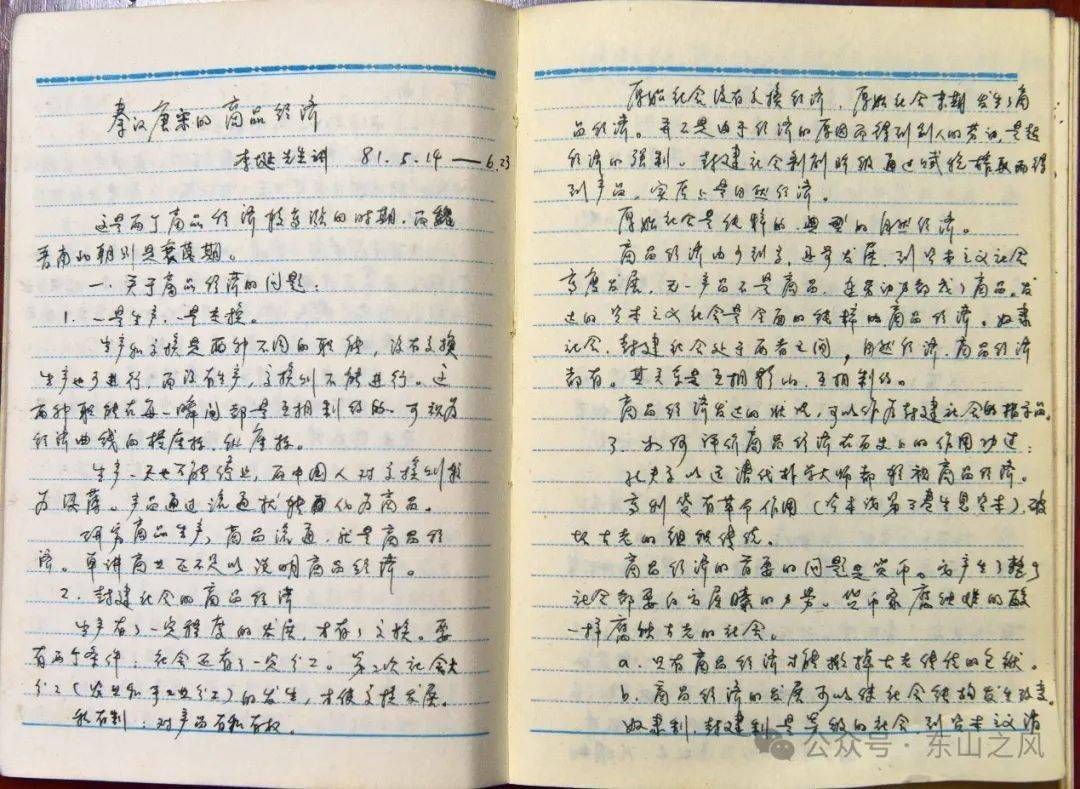 秦汉唐宋的商品经济
李埏先生讲 81.5.14——6.23
这是两个商品经济较高涨的时期。而魏
晋南北朝则是衰落期。
一、关于商品经济的问题:
1. 一是生产,一是交换。
生产和交换是两种不同的职能,没有交换
生产也可进行,而没有生产,交换则不能进行。这
两种职能在每一瞬间都是互相制约的。可视为
经济曲线的横座标、纵座标。
生产一天也不能停止,而中国人对交换则较
为误落。产品通过流通就转化为商品。
研究商品生产,商品流通,就是商品经
济。单讲商业还不足以说明商品经济。
2. 封建社会的商品经济
生产有了一定程度的发展,才有了交换。要
有两个条件:社会还有了一定分工。第二次社会大
分工(农业和手工业分工)的发生,才使交换发展。
私有制:对产品有私有权。
原始社会没有交换经济,原始社会末期发生了商
品经济。并不是由于经济的原因而得到别人的劳动,是超
经济的强制。封建社会剥削阶级通过赋税榨取而得
到产品。实质上是自然经济。
原始社会是纯粹的、典型的自然经济。
商品经济由少到多,日号发展,到资本主义社会
高度发展,无一产品不是商品,连劳动力都成了商品。发
达的资本主义社会是全面的纯粹的商品经济。奴隶
社会、封建社会处于两者之间,自然经济、商品经济
都有。其关系是互相影响、互相制约。
商品经济发达的状况,可以作为封建社会的指示品。
3. 如何评价商品经济在历史上的作用功过:
孔夫子以迄清代朴学大师都轻视商品经济。
高利贷有革命作用(资本论第三卷生息资本),破
坏古老的组织传统。
商品经济的首要的问题是货币。它产生了整个
社会都要白方屈膝的力量。货币象腐蚀性的酸
一样腐蚀古老的社会。
a. 只有商品经济才能撇掉古老传统的包袱。
b. 商品经济的发展可以使社会结构发生改变。
奴隶制、封建制是等级的社会,到资本主义消
公众号·东山之风